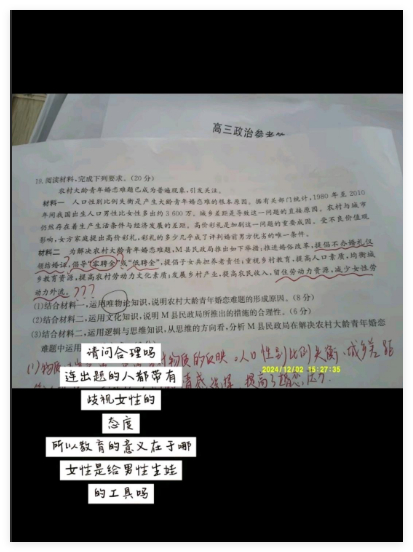 高三政治参考答
19.阅读材料,完成下列要求。(20分)
农村大龄青年婚恋难题已成为普遍现象,引发关注。
材料一 人口性别比例失衡是产生大龄青年婚恋难的根本原因。据有关部门统计,1980年至2010
年间我国出生人口男性比女性多出约3600万。城乡差距是导致这一问题的直接原因。农村与城市
仍然存在着生产生活条件与经济发展的差距。高价彩礼是加剧这一问题的重要成因。受不良价值观
影响,女方家庭提出高价彩礼,彩礼的多少几乎成了评判婚前男方优劣的唯一条件。
材料二 为解决农村大龄青年婚恋难题,M县民政局推出如下举措:推进婚俗改革,提倡不办婚礼仅
领结婚证,倡导"零聘金"或"低聘金",提倡子女共担养老责任;重视乡村教育,提高人口素质,均衡城
乡教育资源,提高农村劳动力文化素质;发展乡村产业,提高农民收入,留住劳动力资源,减少女性劳
动力外流。???
(1)结合材料一,运用唯物论知识,说明农村大龄青年婚恋难题的形成原因。(8分)
(2)结合材料二,运用文化知识,说明M县民政局所推出的措施的合理性。(6分)
(3)结合材料二,运用逻辑与思维知识,从思维的方向看,分析M县民政局在解决农村大龄青年婚恋
难题中运用
物质的反映,人口性别比例失衡,城乡差距
2024/12/02 15:27:35
请问合理吗
连出题的人都带有
歧视女性的
态度
所以教育的意义在于哪
女性是给男性生娃
的工具吗